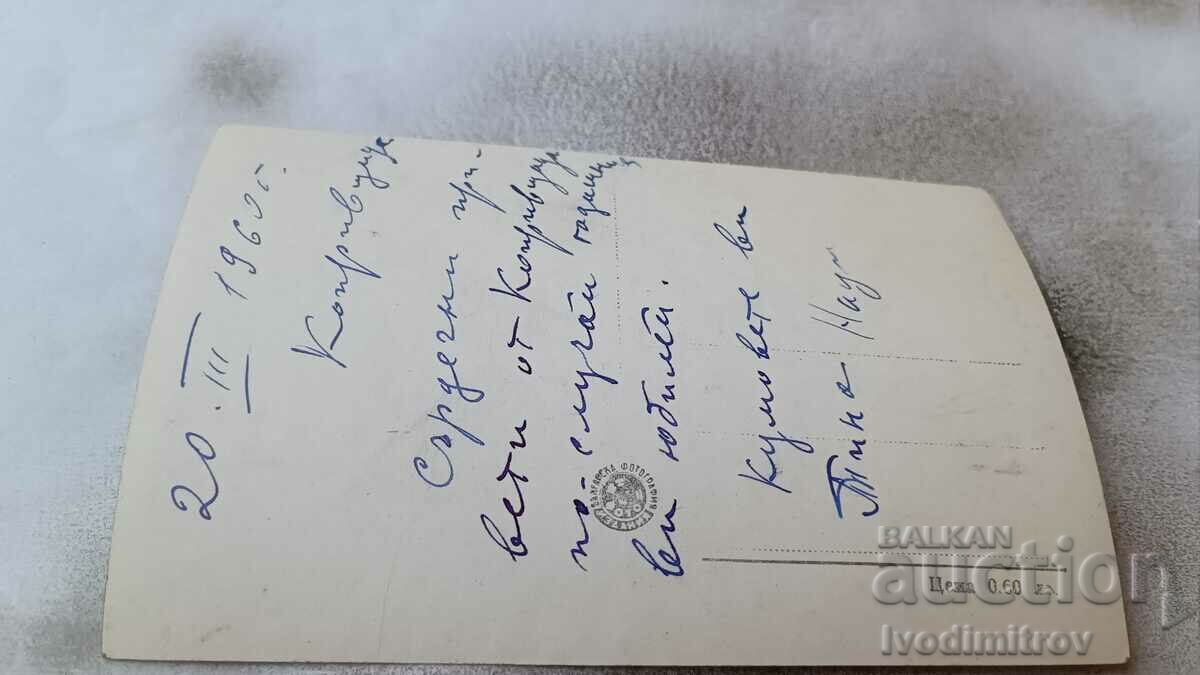 20. III 1960 г.
Копривщица
Сърдечни при-
вети от Копривщица
по-случай годишния
ви юбилей.
Кумовете ви
Тина Наум
БЪЛГАРСКА ФОТОГРАФИЯ
Цена 0.60 лв.
BALKAN
auction
Ivodimitrov